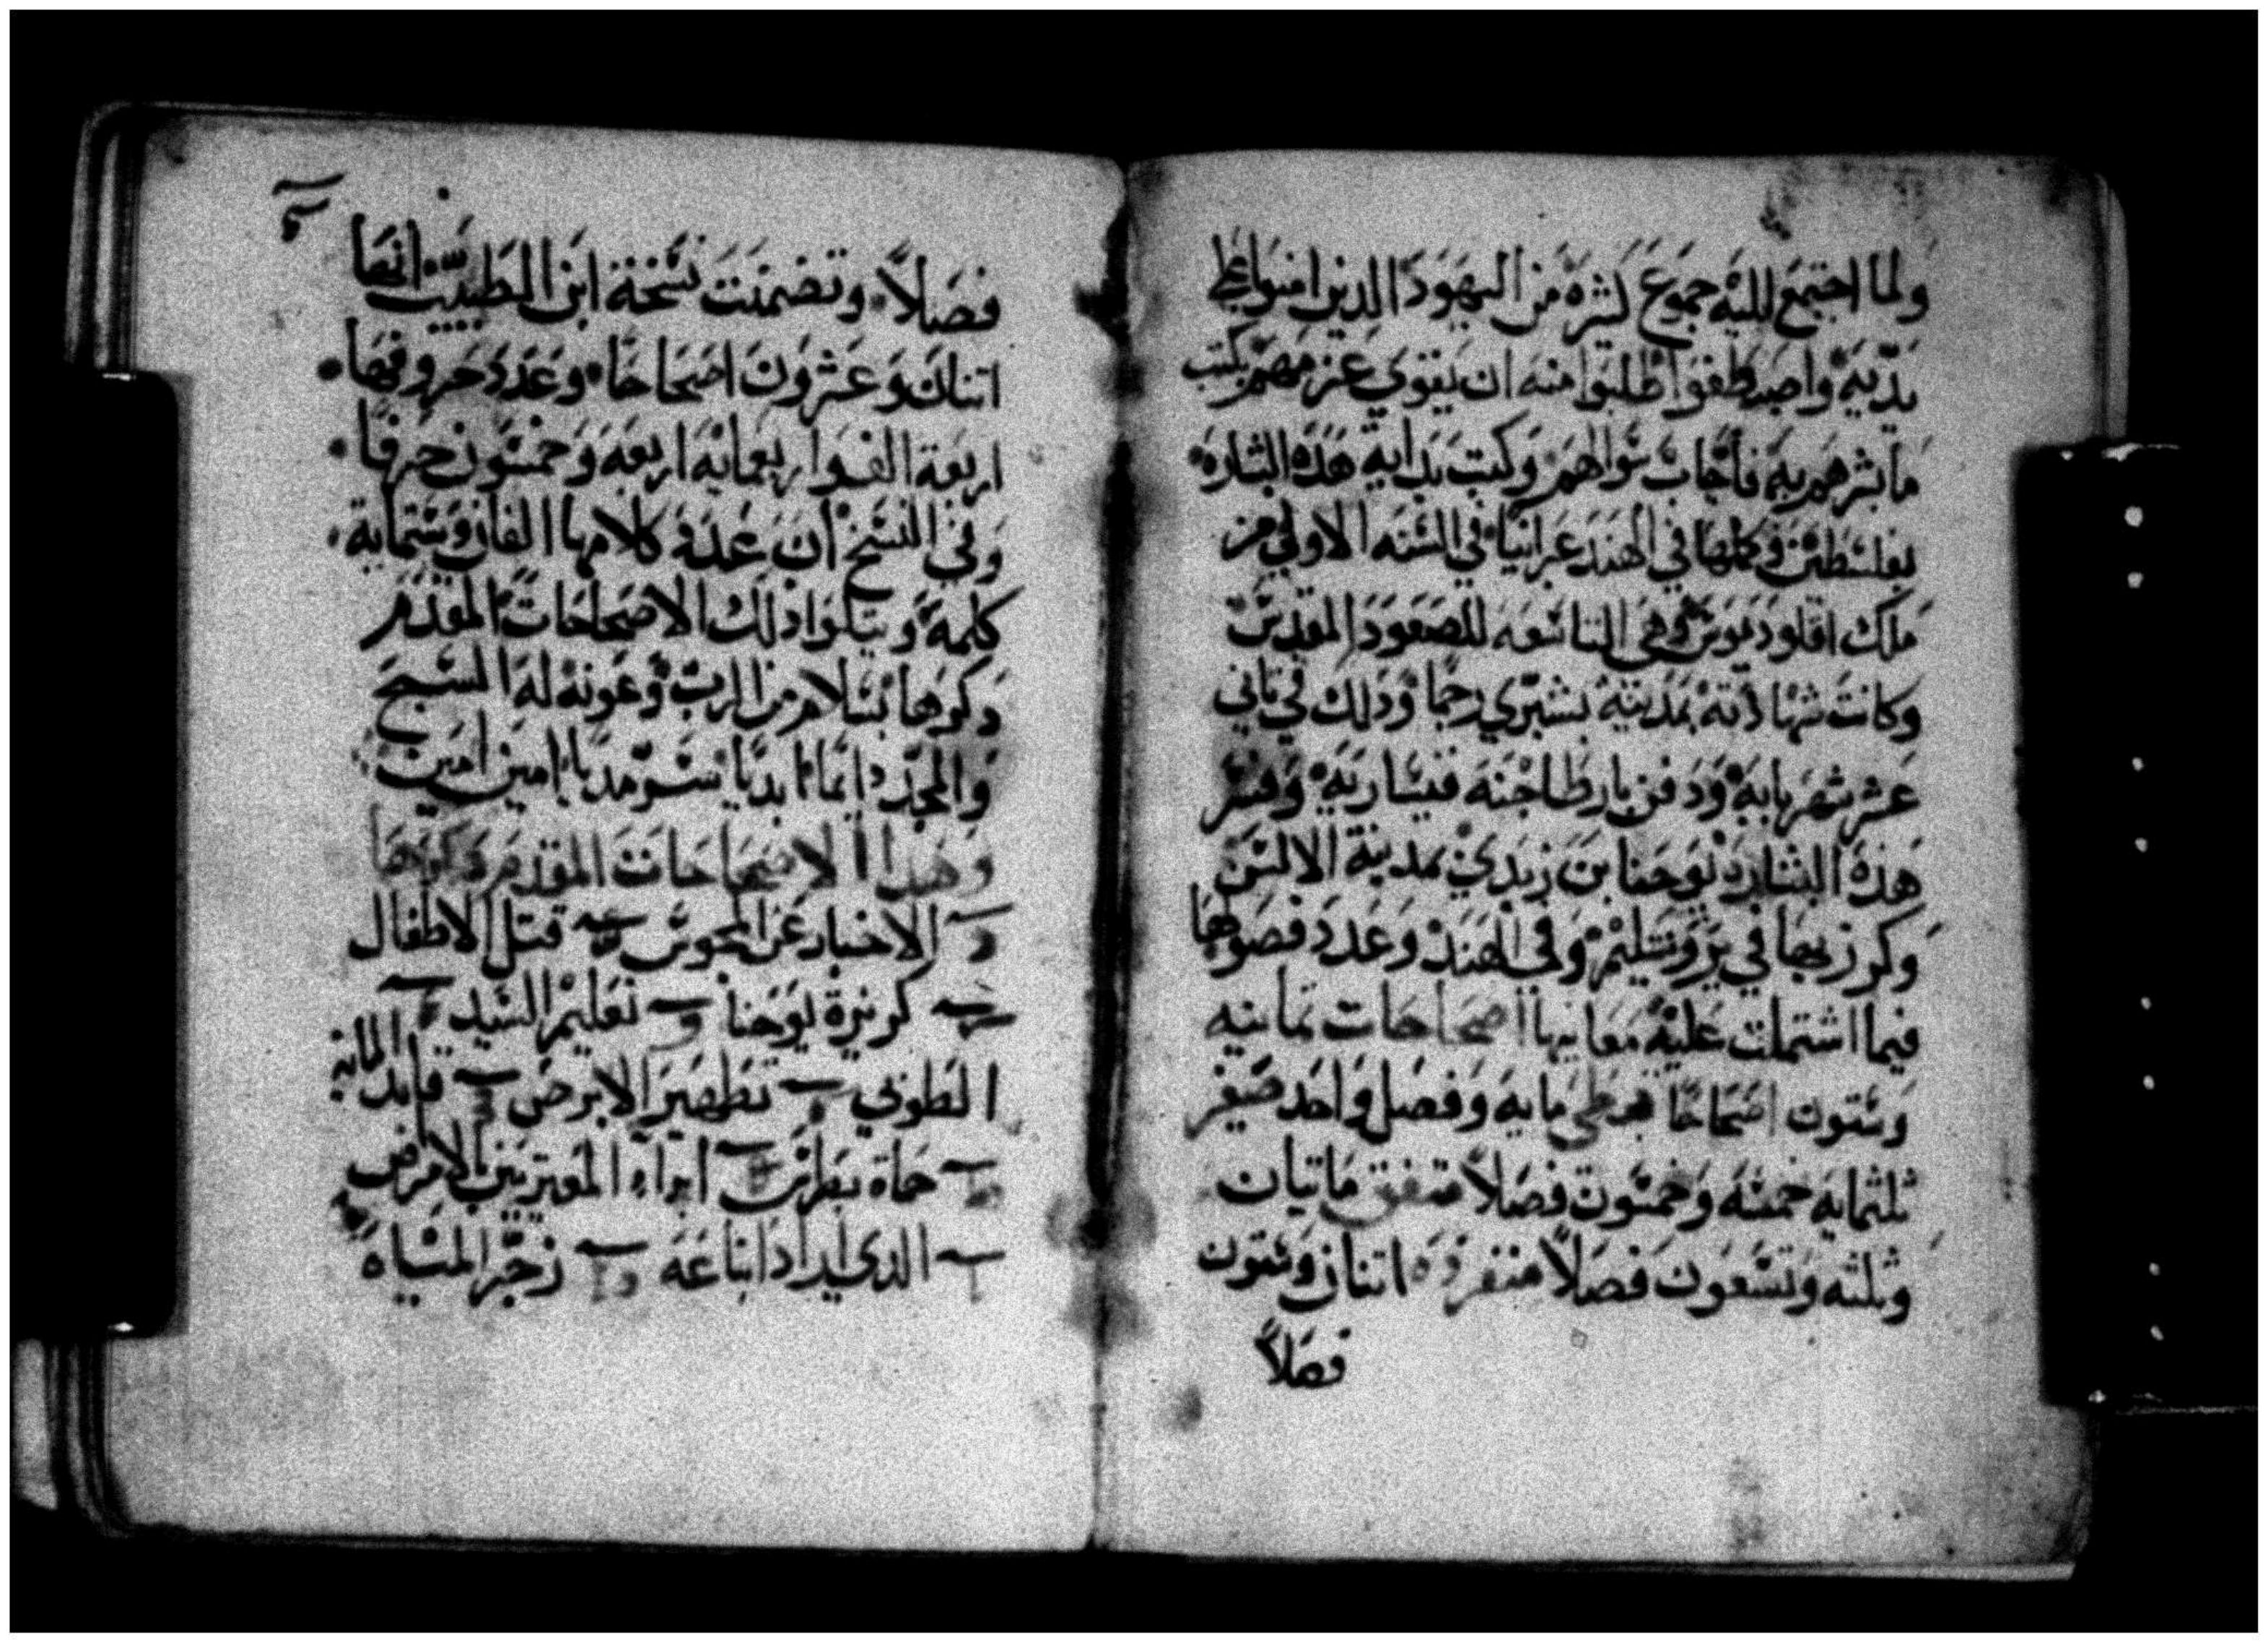 ولما اجتمع لليه جموع كثره من اليهود الدين امنوا على
يديه واصطفوا طلبوا منه ان يقوي عزمهم بكتب
ما بشرهم به فأجاب سواهم وكتب بدايه هذه البشاره
بفلسطين وكملها في الهند عبرانيا في السنه الاولي من
ملك اقلوديوس وهي التاسعه للصعود المقدس
وكانت شهادته بمدينه بشبري رجما ودلك في تاني
عشر شهر بابه ودفن بارطاجنه قيساريه وفسر
هذه البشاره يوحنا بن زبدي بمدينة الالسن
وكرز بها في يروشليم وفي الهند وعدد فصولها
فيما اشتملت عليه معانيها اصحاحات تمانيه
وستون اصحاحا قبطي مايه وفصل واحد صغير
ثلثمايه خمسه وخمسون فصلاً متفق مايتان
وثلثه وتسعون فصلاً منفرده اتنان وستون
فصلاً
فصلاً وتضمنت نسخة ابن الطيب انها
اتنان وعشرون اصحاحا وعدد حروفها
اربعة الف واربعمايه اربعه وخمسون حرفا
وفي النسخ ان عدة كلامها الفان وستماية
كلمه ويتلوا دلك الاصحاحات المقدم
دكرها بسلام من الرب وعونه له المسبح
والمجد دايما ابديا سرمديا امين امين
وهدا الاصحاحات المقدم دكرها
الاخبار عن المجوس قتل الاطفال
كريزة يوحنا تعليم السيد
الطوني تطهير الابرص قايد المايه
حماة بطرس ابراء المعتريين بالامراض
الدي اراد اتباعه زجر المياه